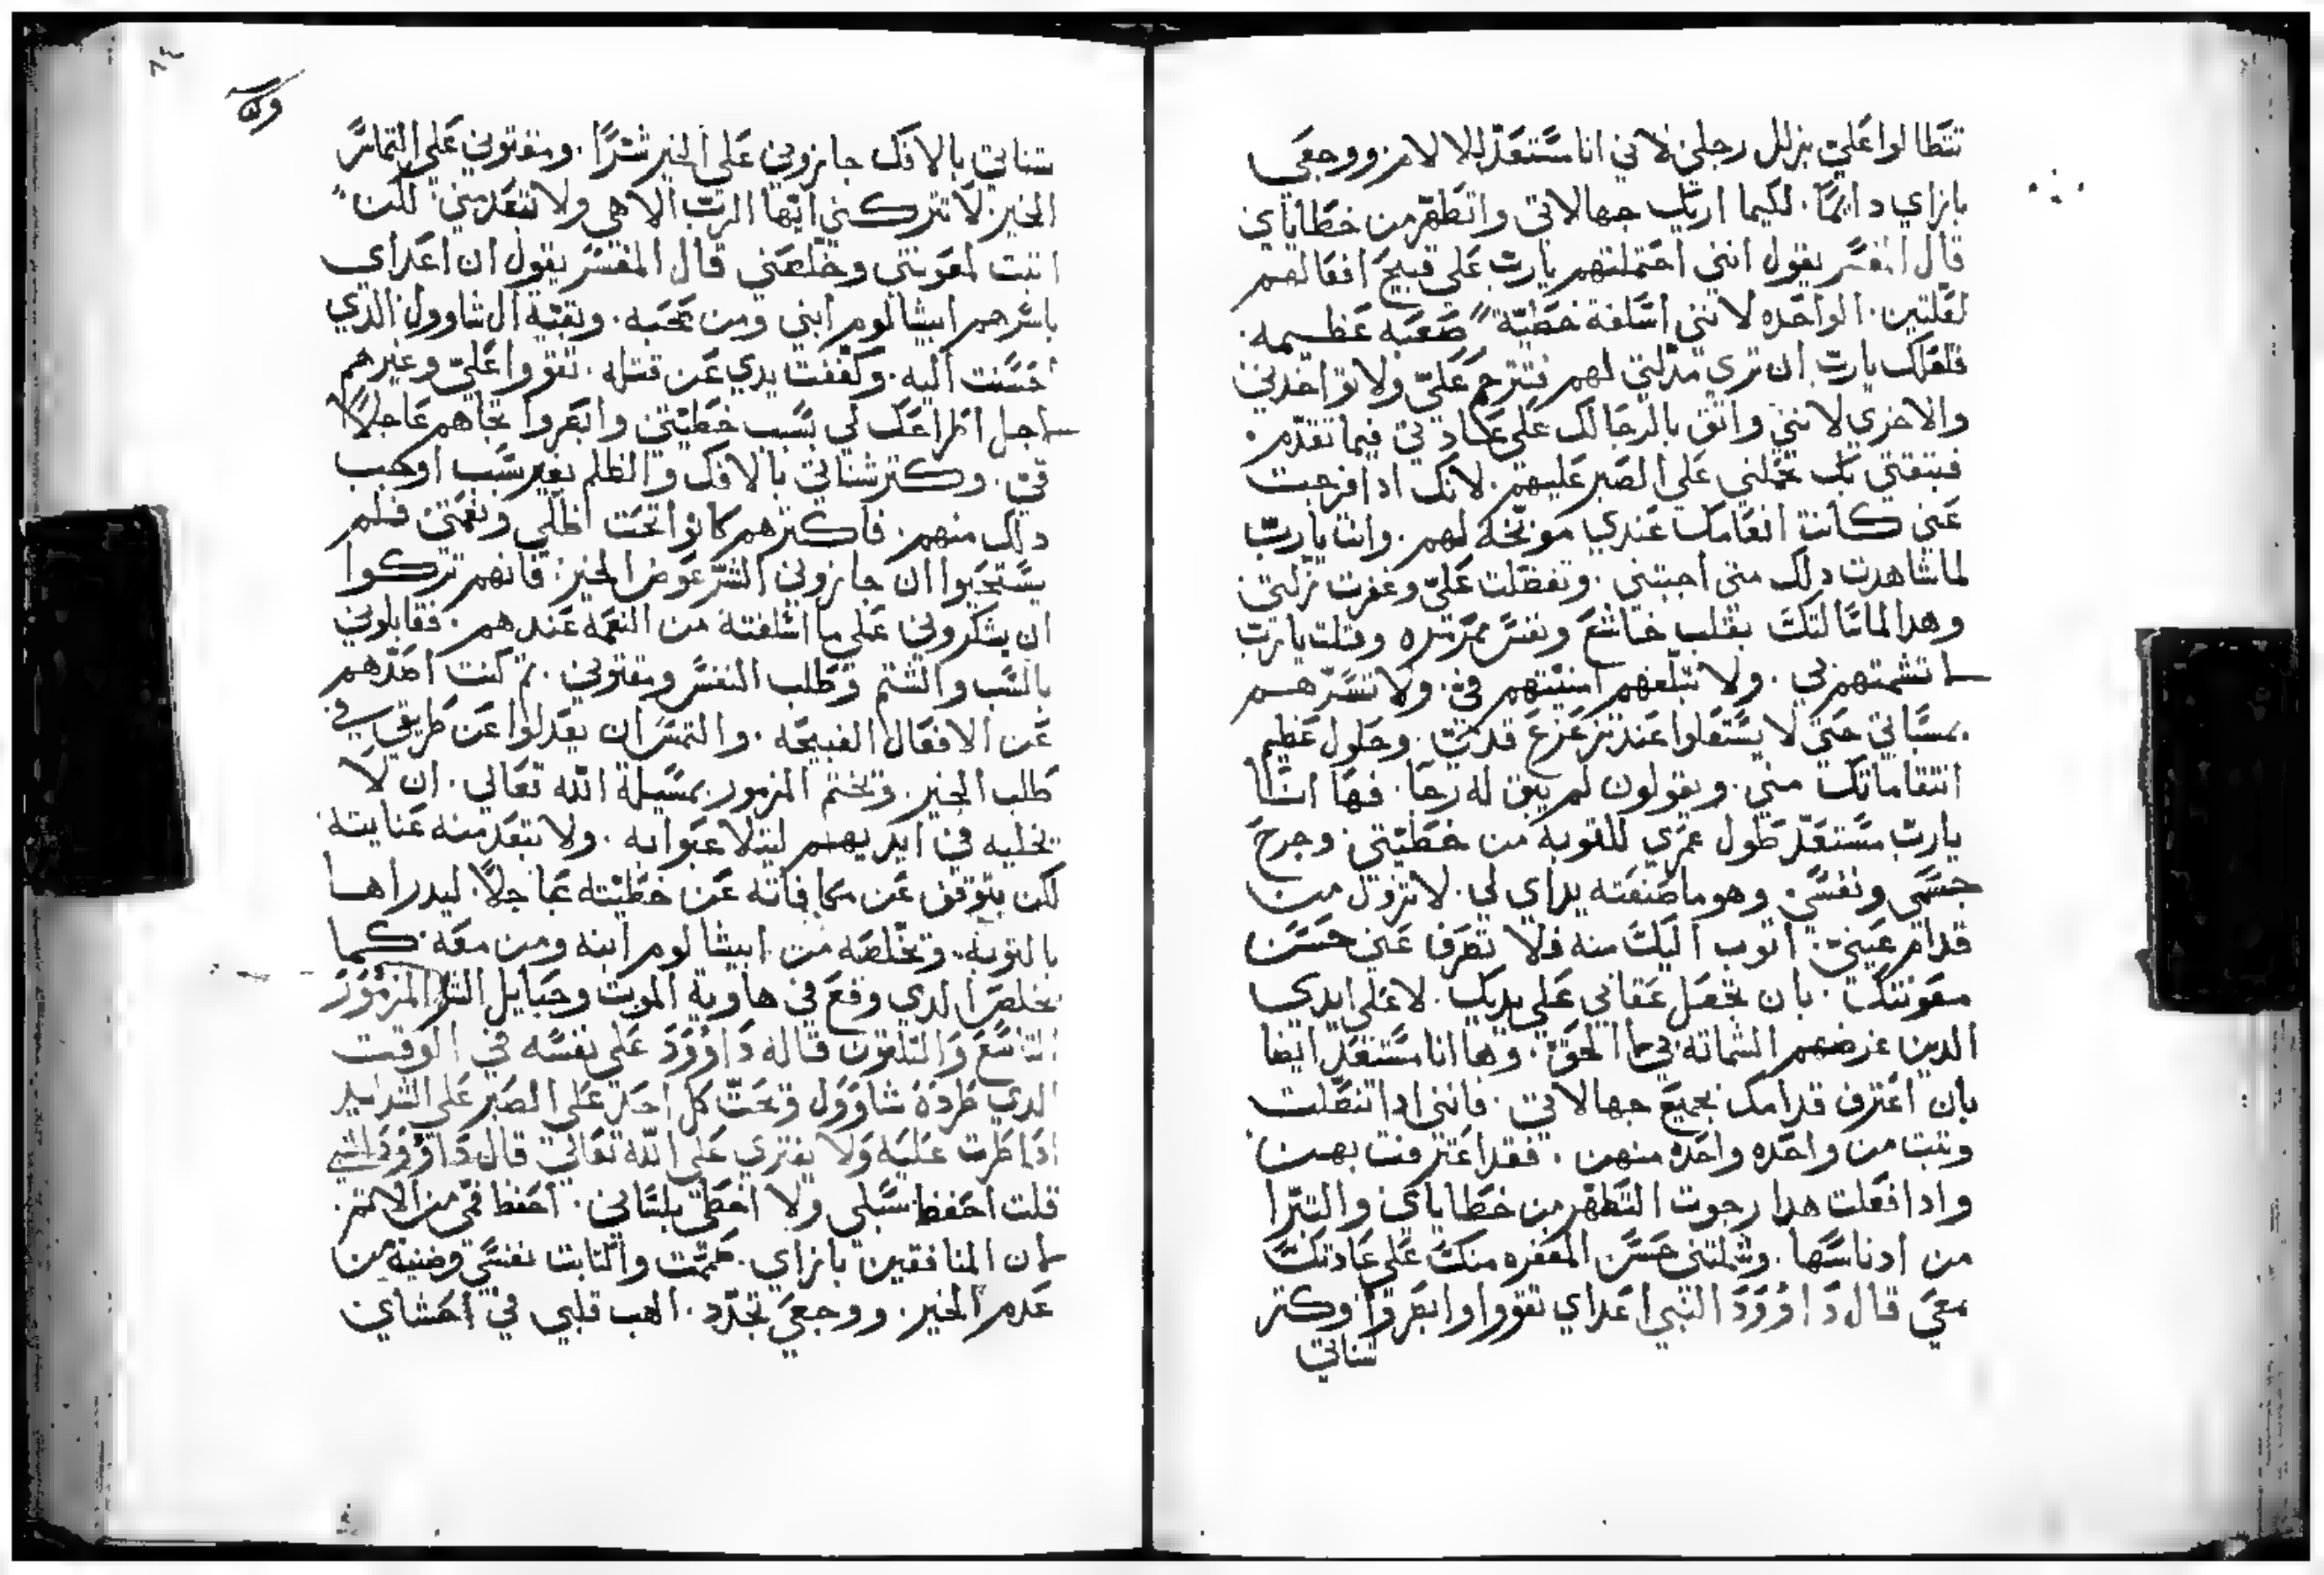 تتطالوا علي بزلل رجلي لاني انا مستعد للالامر ووجعي
بازاي دايما. لكيما اريك جهالاتي واتطهر من خطاياي
قال المفسر يقول انني احتملتهم يارب علي قبيح افعالهم
لعلتين. الواحده لانني اسلفة خطية صعبه عظيمه.
فلعلك يارب ان تري مذلتي لهم فتترحم علي ولا تواخدني
والاخري لانني واثق بالرجا لك علي عادتي فيما تقدم.
فبثقتي بك تحملني علي الصبر عليهم. لانك ادا فرجت
عني كانت انعامك عندي موبخه لهم. وانت يارب
لما شاهدت دلك مني اجبتني. وتفضلت علي وغفرت زلتي
وهدا لما سالتك بقلب خاشع ونفس متمرده وقلت يارب
لا تشمتهم بي. ولا تبلغهم امنيتهم في. ولا تسرهم
بمساتي حتي لا يستعلوا عند تزعزع قدمي. وحلول عظيم
انتقاماتك مني. ويقولون لم يبق له رجا. فها انا
يارب مستعد طول عمري للتوبه من خطيتي وجرح
جسمي ونفسي. وهو ما صنعته يداي لي. لا تزول من
قدام عيني. اتوب اليك منه فلا تصرف عني حسن
معونتك. بان تجعل عقابي علي يديك. لا علي ايدي
الدين غرضهم الشماته بي الحق. وها انا مستعد ايضا
بان اعترف قدامك بجميع جهالاتي. فانني ادا تنصلت
وتبت من واحده واحده منهن. فقد اعترفت بهن
وادا فعلت هدا رجوت التطهر من خطاياي والتبرا
من ادناسها. وشملتني حسن المغفره منك علي عادتك
معي قال داوود النبي اعداي تقووا واتعزوا وكتر
شناتي
شناتي بالافك جازوني علي الخير شرا. ومقتوني علي التماس
الخير. لا تتركني ايها الرب الاهي ولا تبعد مني. لكن
اتيت لمعونتي وخلصني قال المفسر يقول ان اعداي
باسرهم ابيشالوم ابني ومن تحببه. وبقية ال شاوول الدي
احسنت اليه. وكففت يدي عن قتله. تقووا علي وغيرهم
لاجل اطراحك لي بسبب خطيتي واتعزوا تجاهم عاجلا
في. وكتر شناتي بالافك والظلم بغير سبب اوجب
دلك منهم. فاكترهم كانوا تحت ظلي ونعمتي فلم
يستحيوا ان جازوني الشر عوض الخير. فانهم تركوا
ان يشكروني علي ما اسلفته من النعمه عندهم. فقابلوني
بالسب والشتم وطلب النفس ومقتوني. تم كنت اصدهم
عن الافعال القبيحه. والتمس ان يعدلوا عن طريقي في
طلب الخير. ويختم المزمور بمسيلة الله تعالي. ان لا
يخليه في ايديهم ليلا عبوابه. ولا تبعد منه عنايته
لكن يتوقف عن مكافاته عن خطيته عاجلا. ليدراها
بالتوبه. وتخلصه من ابيشالوم ابنه ومن معه. كما
تخلص الدي وقع في هاوية الموت وحبايل المزمور
التاسع والتلتون قاله داوود علي نفسه في الوقت
الدي طرده شاوول وتحت كل احد علي الصبر علي الشدايد
ادا طرت عليه ولا يفتري علي الله تعالي قال داوود النبي
قلت احفظ سبلي ولا اخطي بلساني. احفظ فمي من الاتم.
لان المنافقين بازاي. صممت واكتابت نفسي وضنيت من
عدم الخير. ووجعي تجدد. الهب قلبي في احشاي